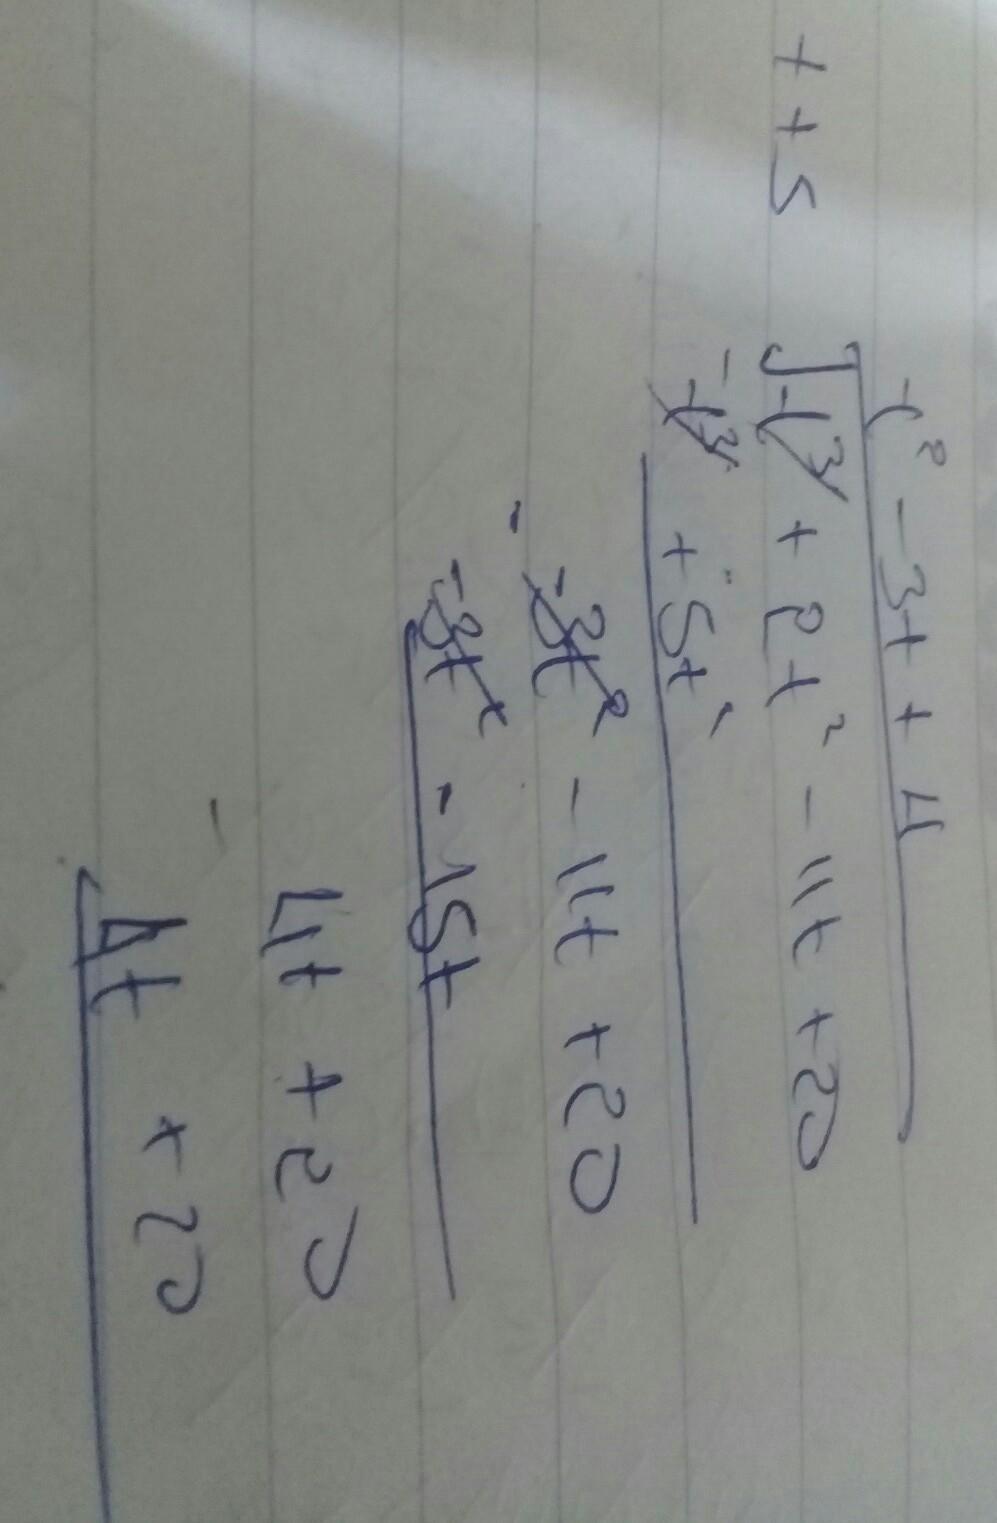 t² - 3t + 4
t + 5 t³ + 2t² - 11t + 20
- t³ + 5t²
- -3t² - 11t + 20
-3t² - 15t
4t + 20
- 4t + 20